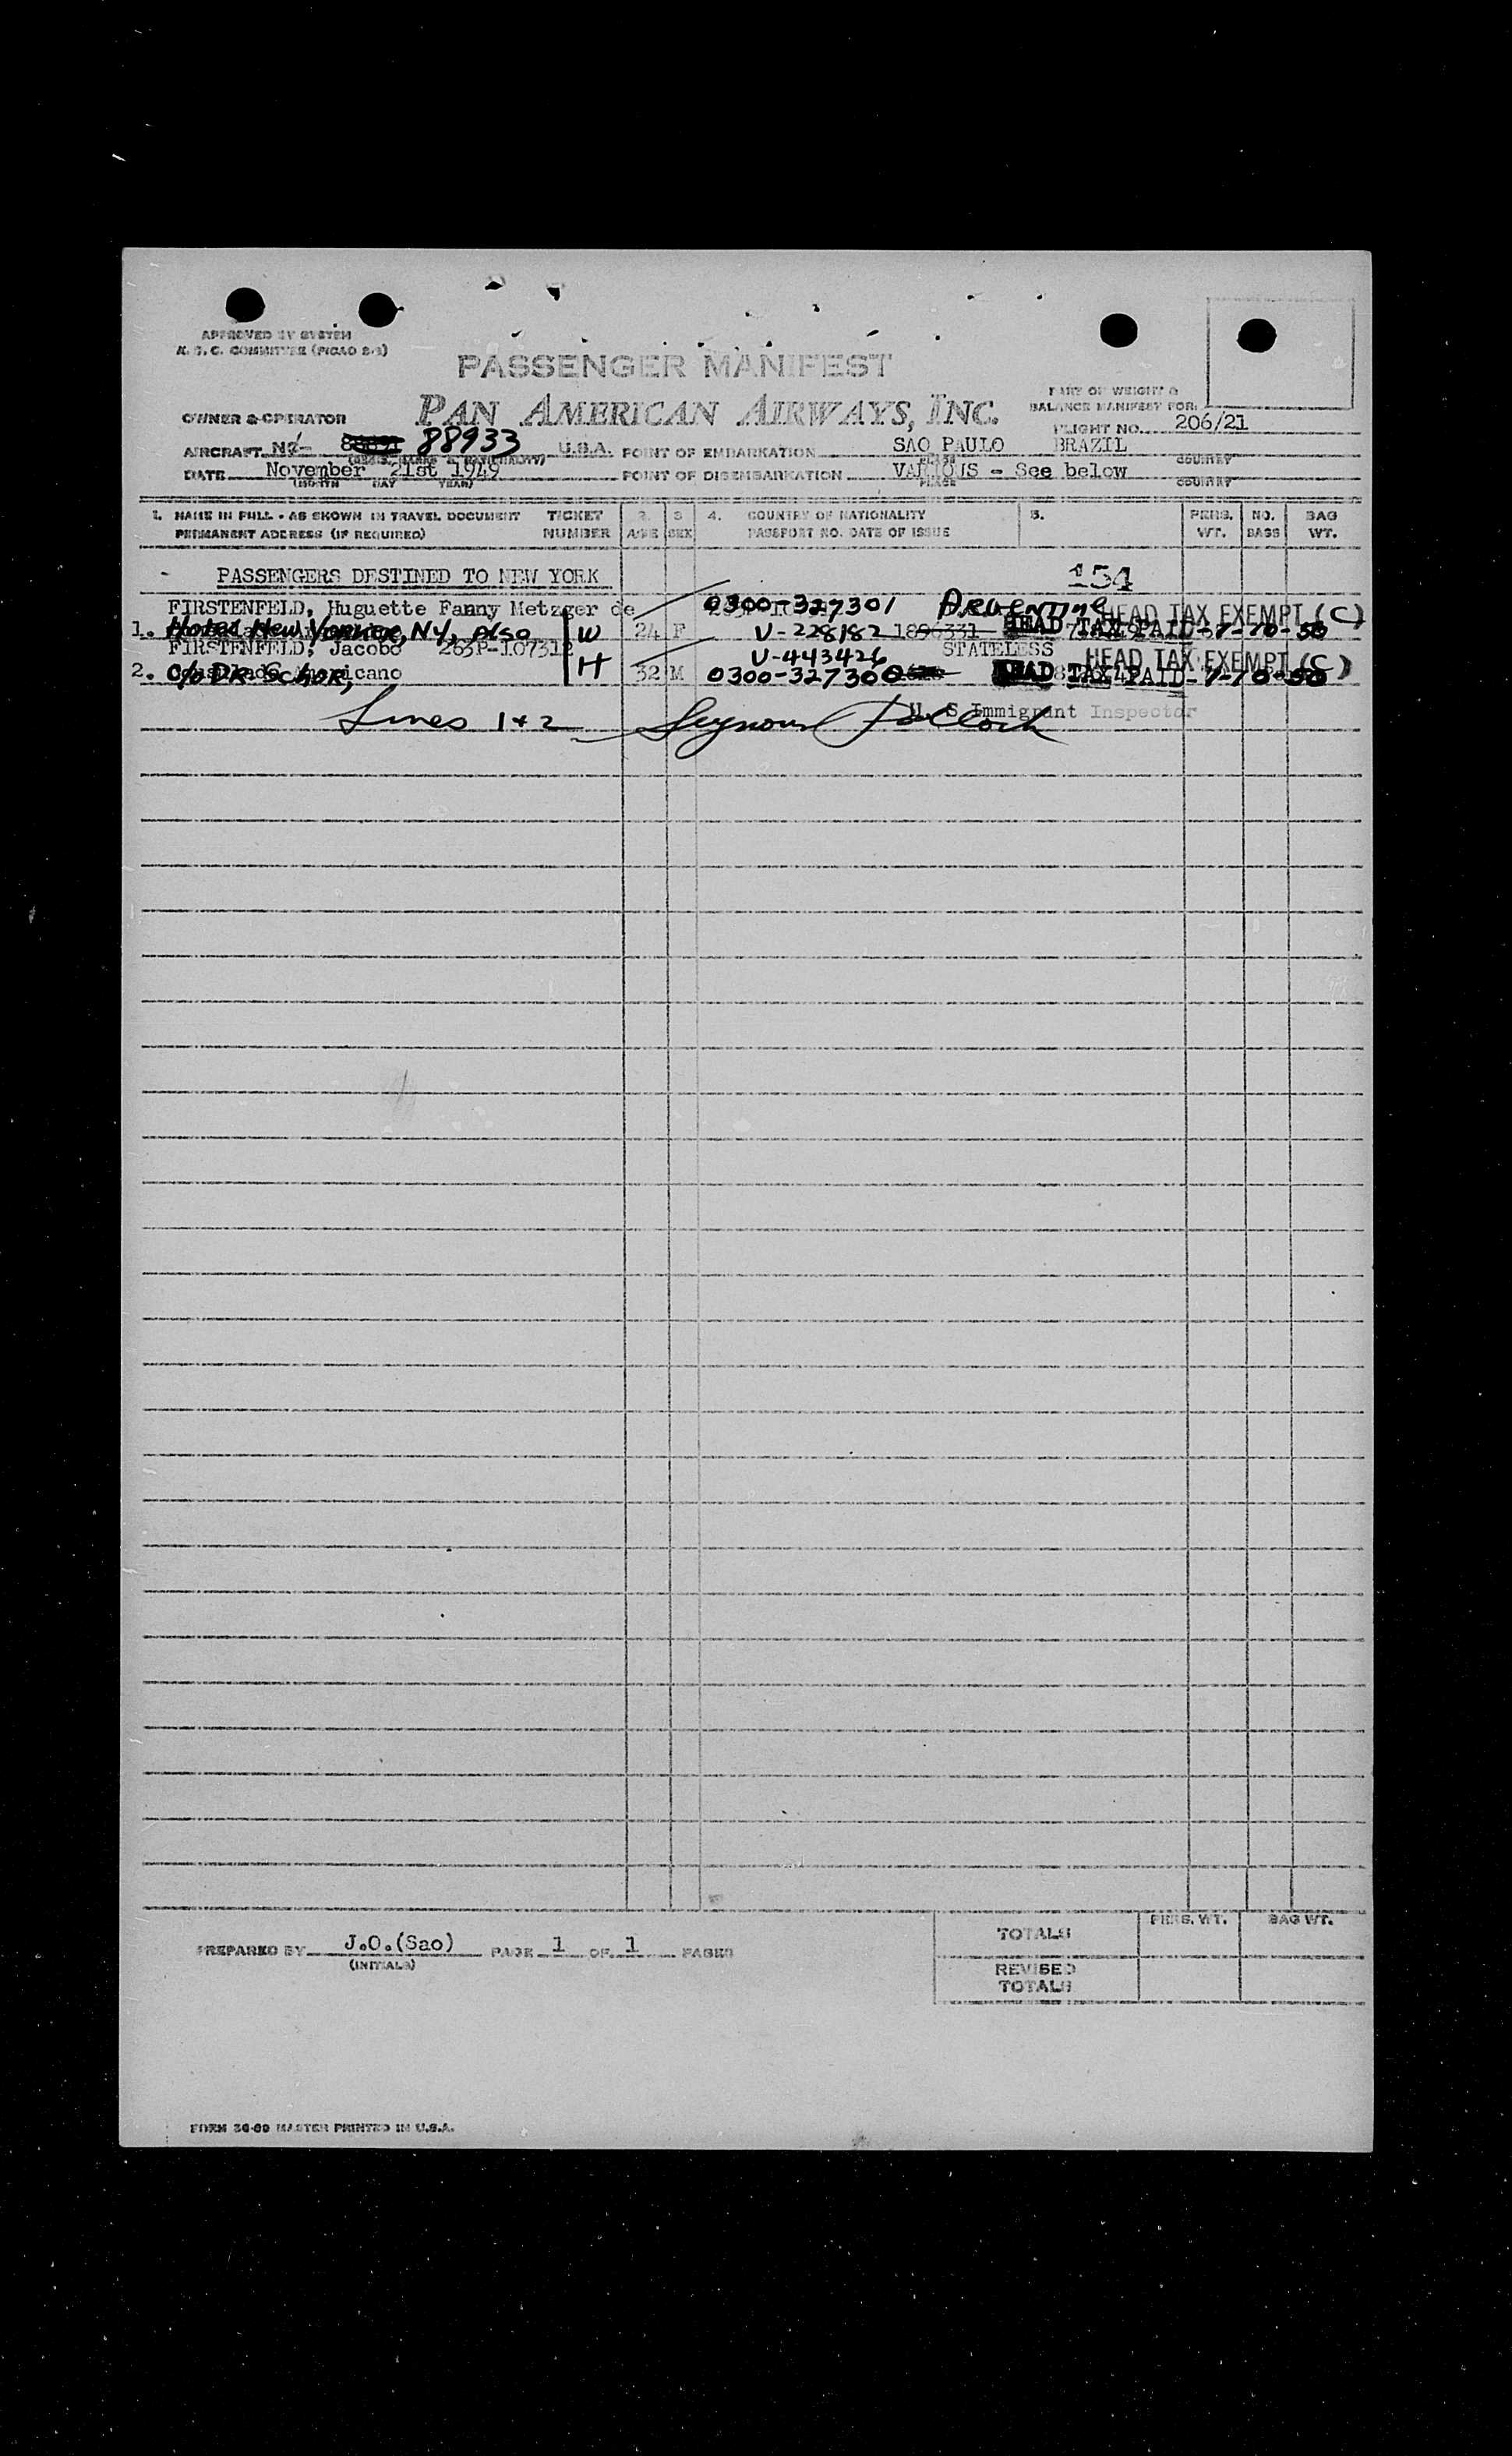 APPROVED BY SYSTEM
A. S. C. COMMITTEE (PICAO 2-3)
PASSENGER MANIFEST
PART OF WEIGHT &
BALANCE MANIFEST FOR:
OWNER & OPERATOR PAN AMERICAN AIRWAYS, INC.
FLIGHT NO. 206/21
AIRCRAFT 88933 U.S.A. POINT OF EMBARKATION SAO PAULO BRAZIL
PLACE COUNTRY
DATE November 21st 1949 POINT OF DISEMBARKATION VARIOUS - See below
(MONTH DAY YEAR) PLACE COUNTRY
1. NAME IN FULL - AS SHOWN IN TRAVEL DOCUMENT TICKET 2. 3 4. COUNTRY OF NATIONALITY 5. PERS. NO. BAG
PERMANENT ADDRESS (IF REQUIRED) NUMBER AGE SEX PASSPORT NO. DATE OF ISSUE WT. BAGS WT.
PASSENGERS DESTINED TO NEW YORK 154
FIRSTENFELD, Huguette Fanny Metzger de 0300-327301 Argentine HEAD TAX EXEMPT (C)
1. Hotel New Yorker, NY, also W 24 F V-228182 1896331 HEAD TAX PAID-7-10-50
FIRSTENFELD, Jacobo 263P-107312 V-443426 STATELESS HEAD TAX EXEMPT (C)
2. c/o DR Schor, H 32 M 0300-327300 HEAD TAX PAID-7-10-50
Lines 1 + 2 Seymour Pollock U. S Immigrant Inspector
PREPARED BY J.O.(Sao) PAGE 1 OF 1 PAGES
(INITIALS)
PERS. WT. BAG WT.
TOTALS
REVISED
TOTALS
FORM 36-60 MASTER PRINTED IN U.S.A.